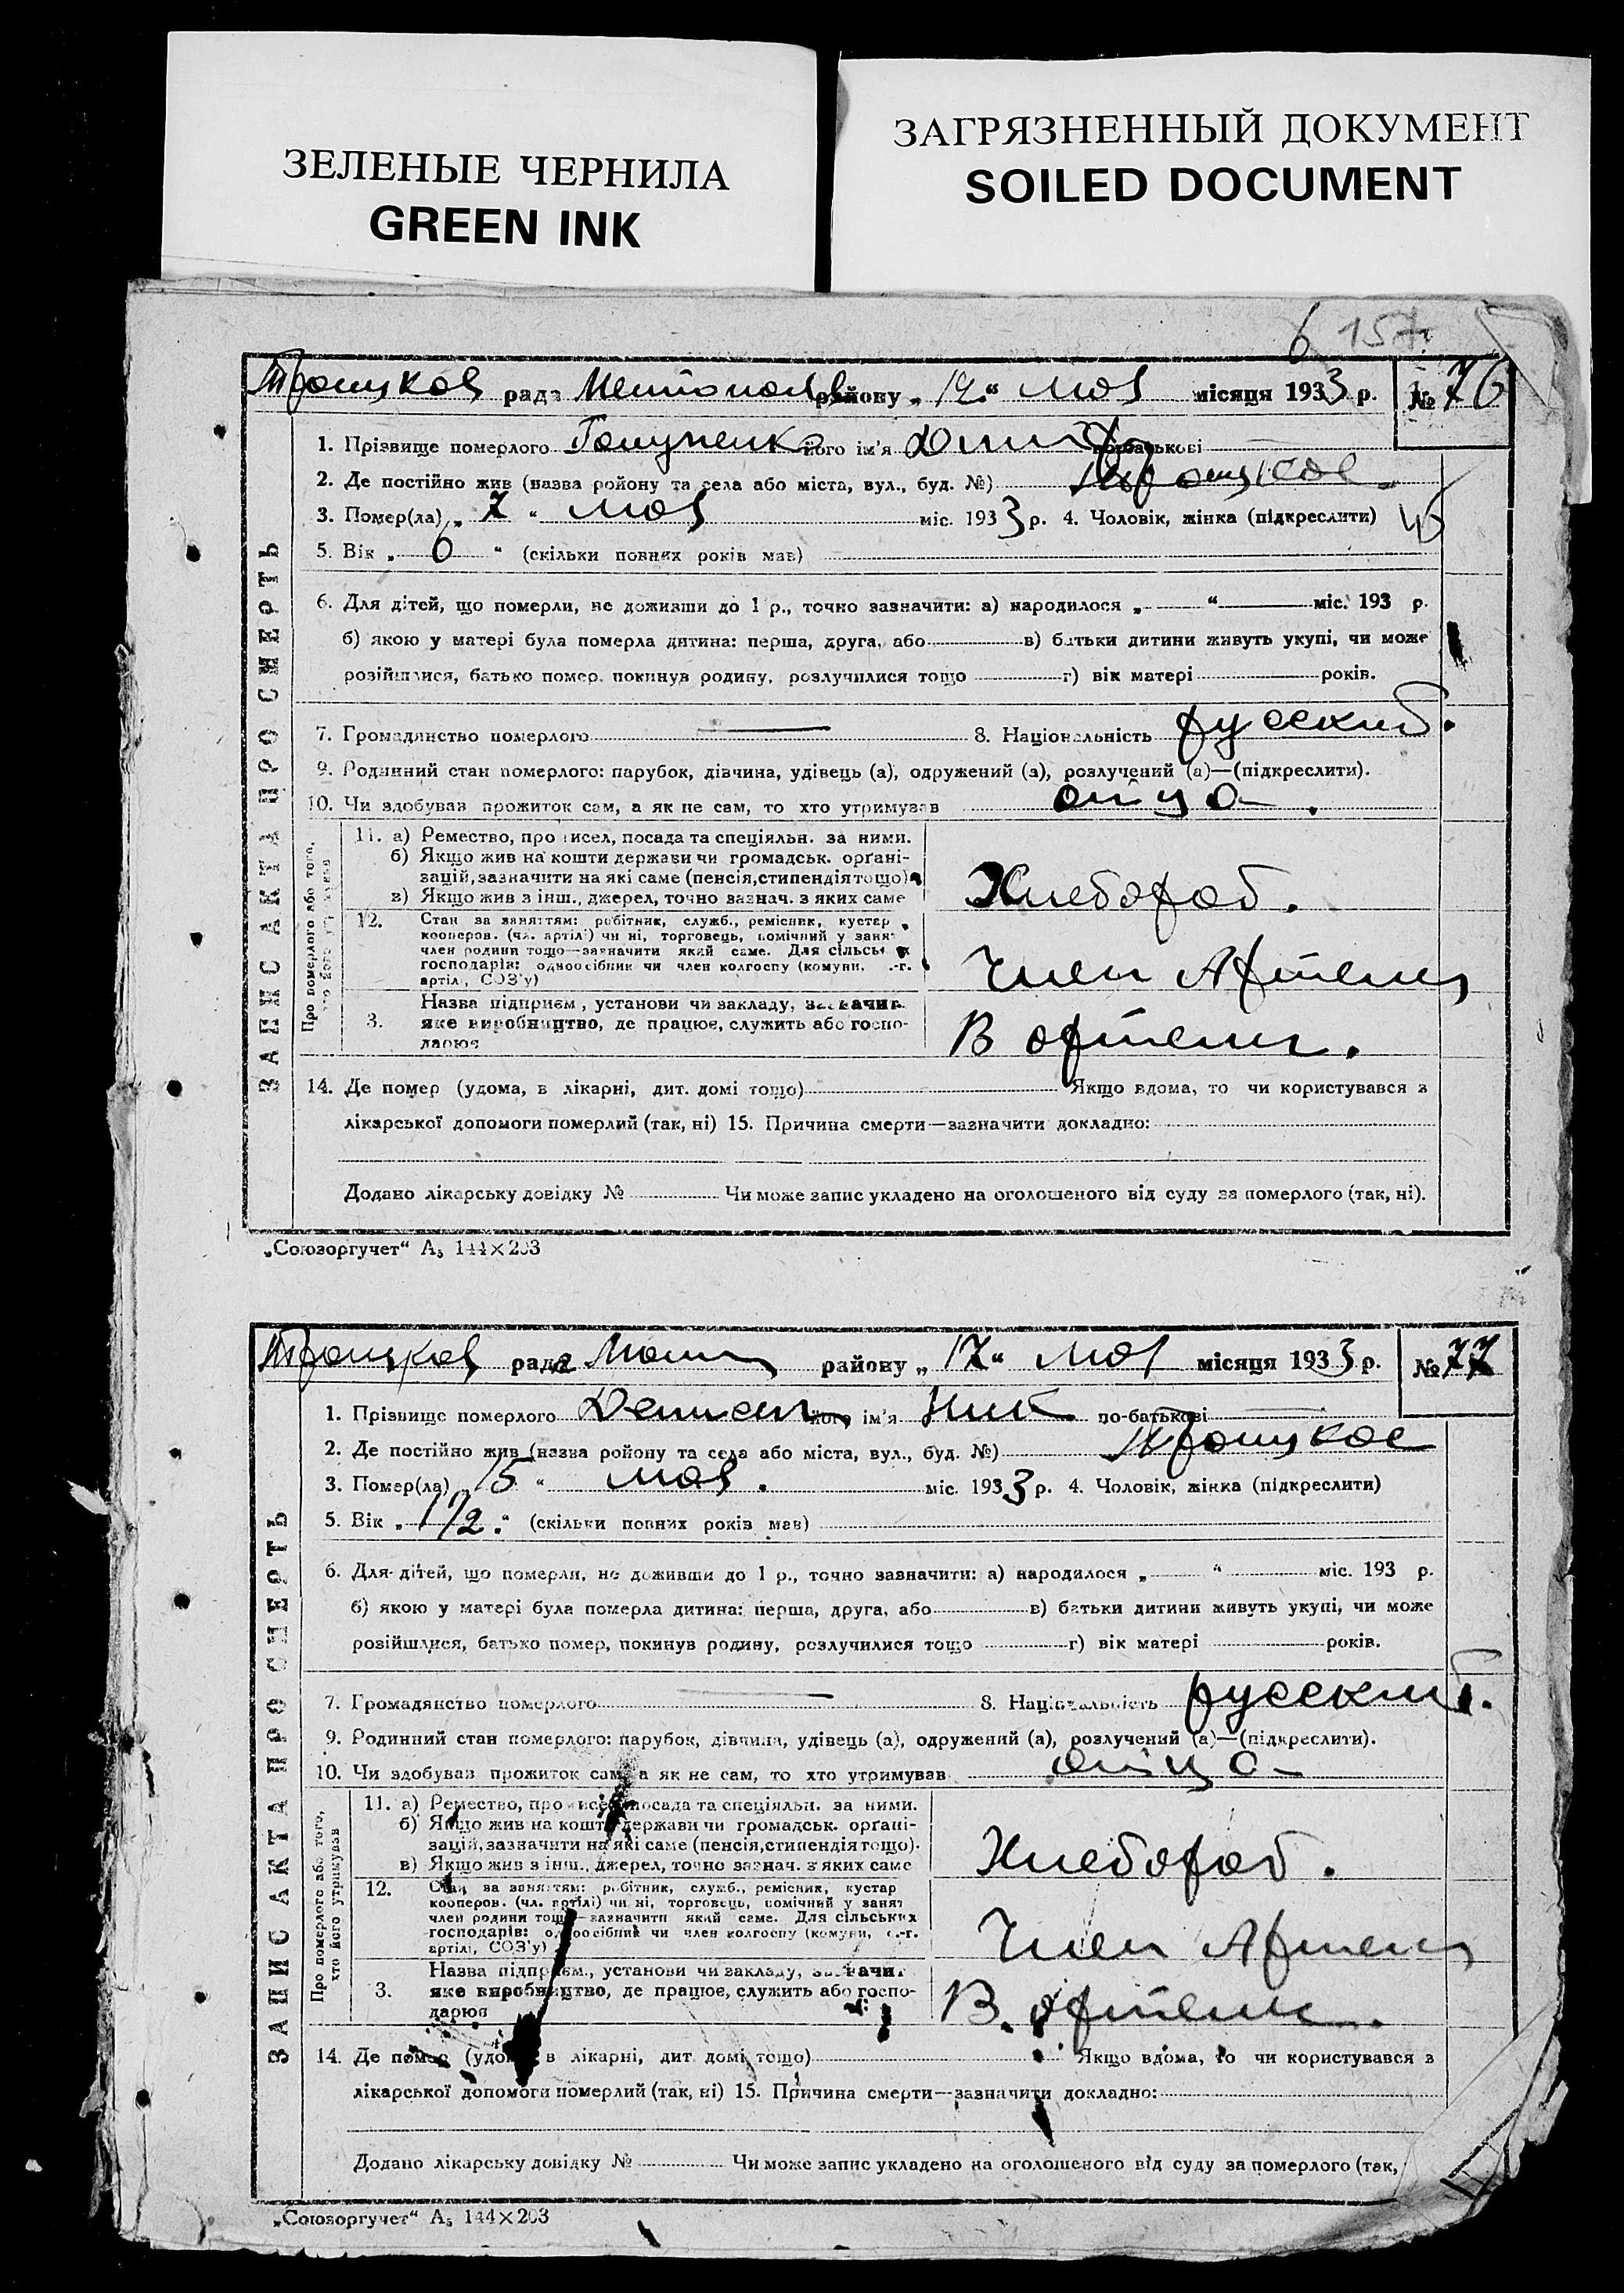 ЗЕЛЕНЫЕ ЧЕРНИЛА
GREEN INK
ЗАГРЯЗНЕННЫЙ ДОКУМЕНТ
SOILED DOCUMENT
6 157
Троицков рада района „12“ мая місяця 1933 р. № 76
ЗАПИС АКТА ПРО СМЕРТЬ
1. Прізвище померлого його ім'я по-батькові
2. Де постійно жив (назва ройону та села або міста, вул., буд. №) Троицкое
3. Помер(ла) „7“ мая міс. 1933 р. 4. Чоловік, жінка (підкреслити)
5. Вік „6“ (скільки повних років мав)
6. Для дітей, що померли, не доживши до 1 р., точно зазначити: а) народилося „ “ міс. 193 р.
б) якою у матері була померла дитина: перша, друга, або в) батьки дитини живуть укупі, чи може
розійшлися, батько помер, покинув родину, розлучилися тощо г) вік матері років.
7. Громадянство померлого — 8. Національність русский.
9. Родинний стан померлого: парубок, дівчина, удівець (а), одружений (а), розлучений (а)—(підкреслити).
10. Чи здобував прожиток сам, а як не сам, то хто утримував отца.
Про померлого або того, хто його утримував
11. а) Ремество, промисел, посада та спеціяльн. за ними.
б) Якщо жив на кошти держави чи громадськ. орґані-
зацій, зазначити на які саме (пенсія, стипендія тощо)
в) Якщо жив з інш., джерел, точно зазнач. з яких саме
Хлебороб.
12. Стан за заняттям: робітник, служб., ремісник, кустар
кооперов. (чл. артілі) чи ні, торговець, помічний у занят
член родини тощо—зазначити який саме. Для сільських
господарів: одноосібник чи член колгоспу (комуни, с.-г.
артілі, СОЗ'у)
Член Артели
3. Назва підприєм., установи чи закладу, зазначит
яке виробництво, де працює, служить або госпо-
дарює
В артели.
14. Де помер (удома, в лікарні, дит. домі тощо) Якщо вдома, то чи користувався з
лікарської допомоги померлий (так, ні) 15. Причина смерти—зазначити докладно:
Додано лікарську довідку № Чи може запис укладено на оголошеного від суду за померлого (так, ні).
„Союзоргучет“ А5 144×203
Троицков рада району „17“ мая місяця 1933 р. № 77
ЗАПИС АКТА ПРО СМЕРТЬ
1. Прізвище померлого його ім'я по-батькові
2. Де постійно жив (назва ройону та села або міста, вул., буд. №) Троицкое
3. Помер(ла) „15“ мая. міс. 1933 р. 4. Чоловік, жінка (підкреслити)
5. Вік „1 1/2“ (скільки повних років мав)
6. Для дітей, що померли, не доживши до 1 р., точно зазначити: а) народилося „ “ міс. 193 р.
б) якою у матері була померла дитина: перша, друга, або в) батьки дитини живуть укупі, чи може
розійшлися, батько помер, покинув родину, розлучилися тощо г) вік матері років.
7. Громадянство померлого — 8. Національність русский.
9. Родинний стан померлого: парубок, дівчина, удівець (а), одружений (а), розлучений (а)—(підкреслити).
10. Чи здобував прожиток сам, а як не сам, то хто утримував отца
Про померлого або того, хто його утримував
11. а) Ремество, промисел, посада та спеціяльн. за ними.
б) Якщо жив на кошти держави чи громадськ. орґані-
зацій, зазначити на які саме (пенсія, стипендія тощо).
в) Якщо жив з інш., джерел, точно зазнач. з яких саме
Хлебороб.
12. Стан за заняттям: робітник, служб., ремісник, кустар
кооперов. (чл. артілі) чи ні, торговець, помічний у занят
член родини тощо—зазначити який саме. Для сільських
господарів: одноосібник чи член колгоспу (комуни, с.-г.
артілі, СОЗ'у)
Член Артели
3. Назва підприєм., установи чи закладу, зазначит
яке виробництво, де працює, служить або госпо-
дарює
В артели.
14. Де помер (удома, в лікарні, дит домі тощо) Якщо вдома, то чи користувався з
лікарської допомоги померлий (так, ні) 15. Причина смерти—зазначити докладно:
Додано лікарську довідку № Чи може запис укладено на оголошеного від суду за померлого (так,
„Союзоргучет“ А5 144×203